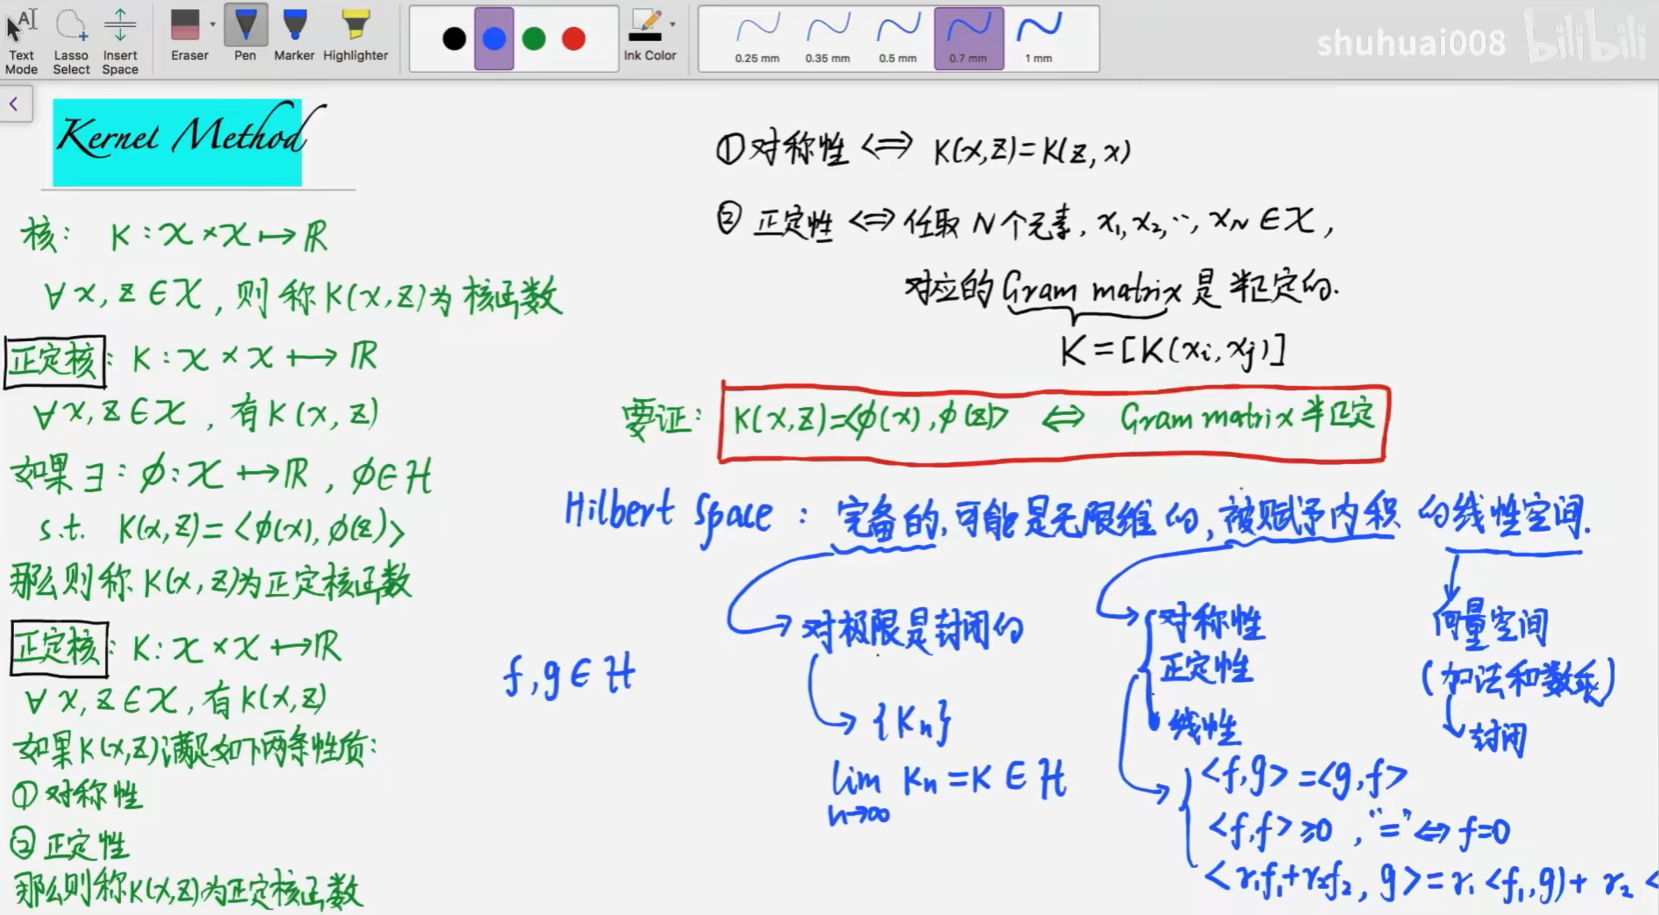 Text Mode
Lasso Select
Insert Space
Eraser
Pen
Marker
Highlighter
Ink Color
0.25 mm
0.35 mm
0.5 mm
0.7 mm
1 mm
shuhuai008 bilibili
Kernel Method
核: K: X × X ↦ ℝ
∀x, z ∈ X, 则称K(x,z)为核函数
正定核: K: X × X ↦ ℝ
∀x, z ∈ X, 有K(x, z)
如果∃: φ: X ↦ ℝ, φ∈H
s.t. K(x,z)=<φ(x), φ(z)>
那么则称K(x,z)为正定核函数
正定核: K: X × X ↦ ℝ
∀x, z ∈ X, 有K(x,z)
如果K(x,z)满足如下两条性质:
① 对称性
② 正定性
那么则称K(x,z)为正定核函数
① 对称性 ⟺ K(x,z)=K(z,x)
② 正定性 ⟺ 任取N个元素, x₁,x₂,…,x_N∈X,
对应的Gram matrix是半正定的.
K=[K(xᵢ,xⱼ)]
要证: K(x,z)=<φ(x),φ(z)> ⟺ Gram matrix半正定
Hilbert Space: 完备的,可能是无限维的,被赋予内积的线性空间.
对极限是封闭的
{Kₙ}
lim Kₙ=K∈H
n→∞
f,g∈H
对称性
正定性
线性
<f,g>=<g,f>
<f,f>≥0, "="⟺f=0
<r₁f₁+r₂f₂, g>=r₁<f₁,g>+r₂<
向量空间
(加法和数乘)
封闭